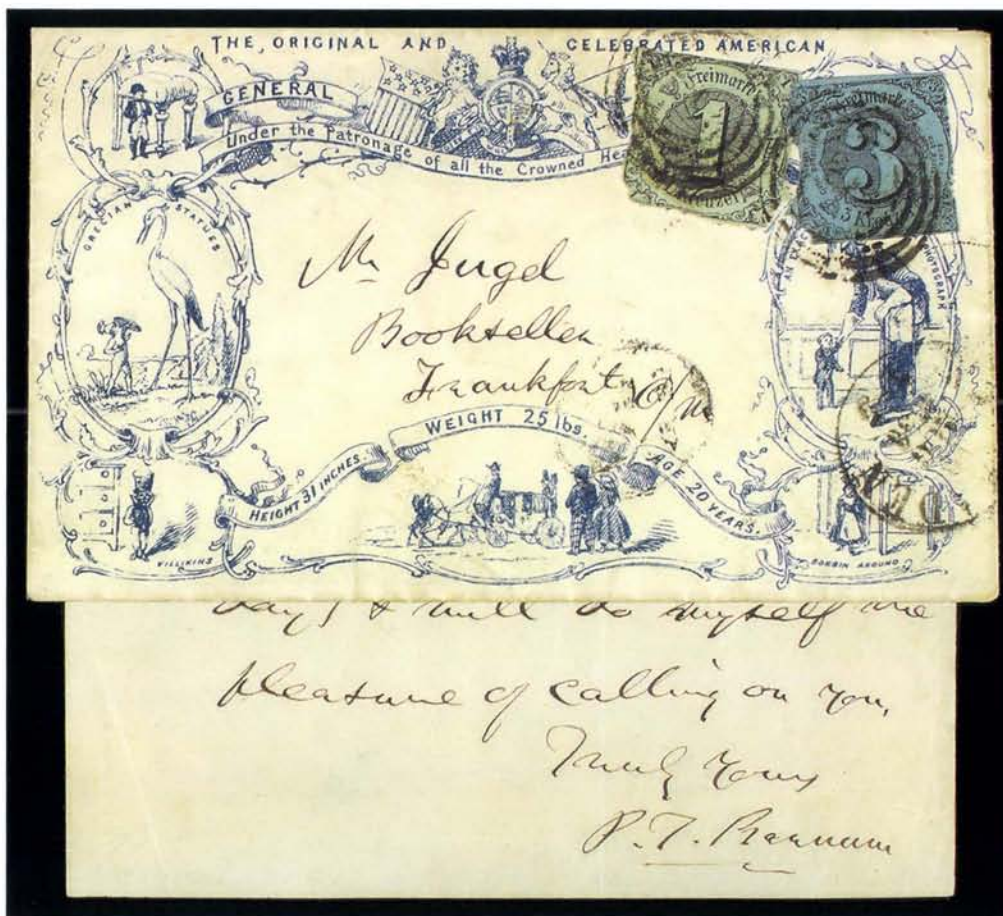 THE ORIGINAL AND CELEBRATED AMERICAN
GENERAL
Under the Patronage of all the Crowned Hea
Freimarke
1
Kreuzer
Freimarke
3
3 Kr
GRECIAN STATUES
AN EXAC
PHOTOGRAPH
Mr Jugel
Bookseller
Frankfort o/m
HEIGHT 31 INCHES
WEIGHT 25 lbs.
AGE 20 YEARS.
VILLIKINS
BOBBIN AROUND
days & will do myself the
pleasure of calling on you,
Truly Yours
P. T. Barnum